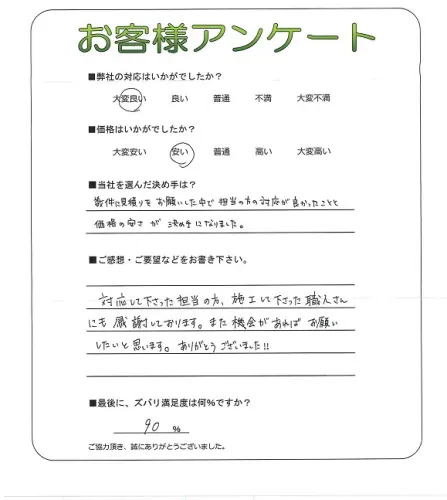 お客様アンケート
■弊社の対応はいかがでしたか？
大変良い 良い 普通 不満 大変不満
■価格はいかがでしたか？
大変安い 安い 普通 高い 大変高い
■当社を選んだ決め手は？
に見積りをお願いした中で担当の方の対応が良かったことと
価格の安さが決め手になりました。
■ご感想・ご要望などをお書き下さい。
対応して下さった担当の方、施工して下さった職人さん
にも感謝しております。また機会があればお願い
したいと思います。ありがとうございました!!
■最後に、ズバリ満足度は何％ですか？
90 ％
ご協力頂き、誠にありがとうございました。